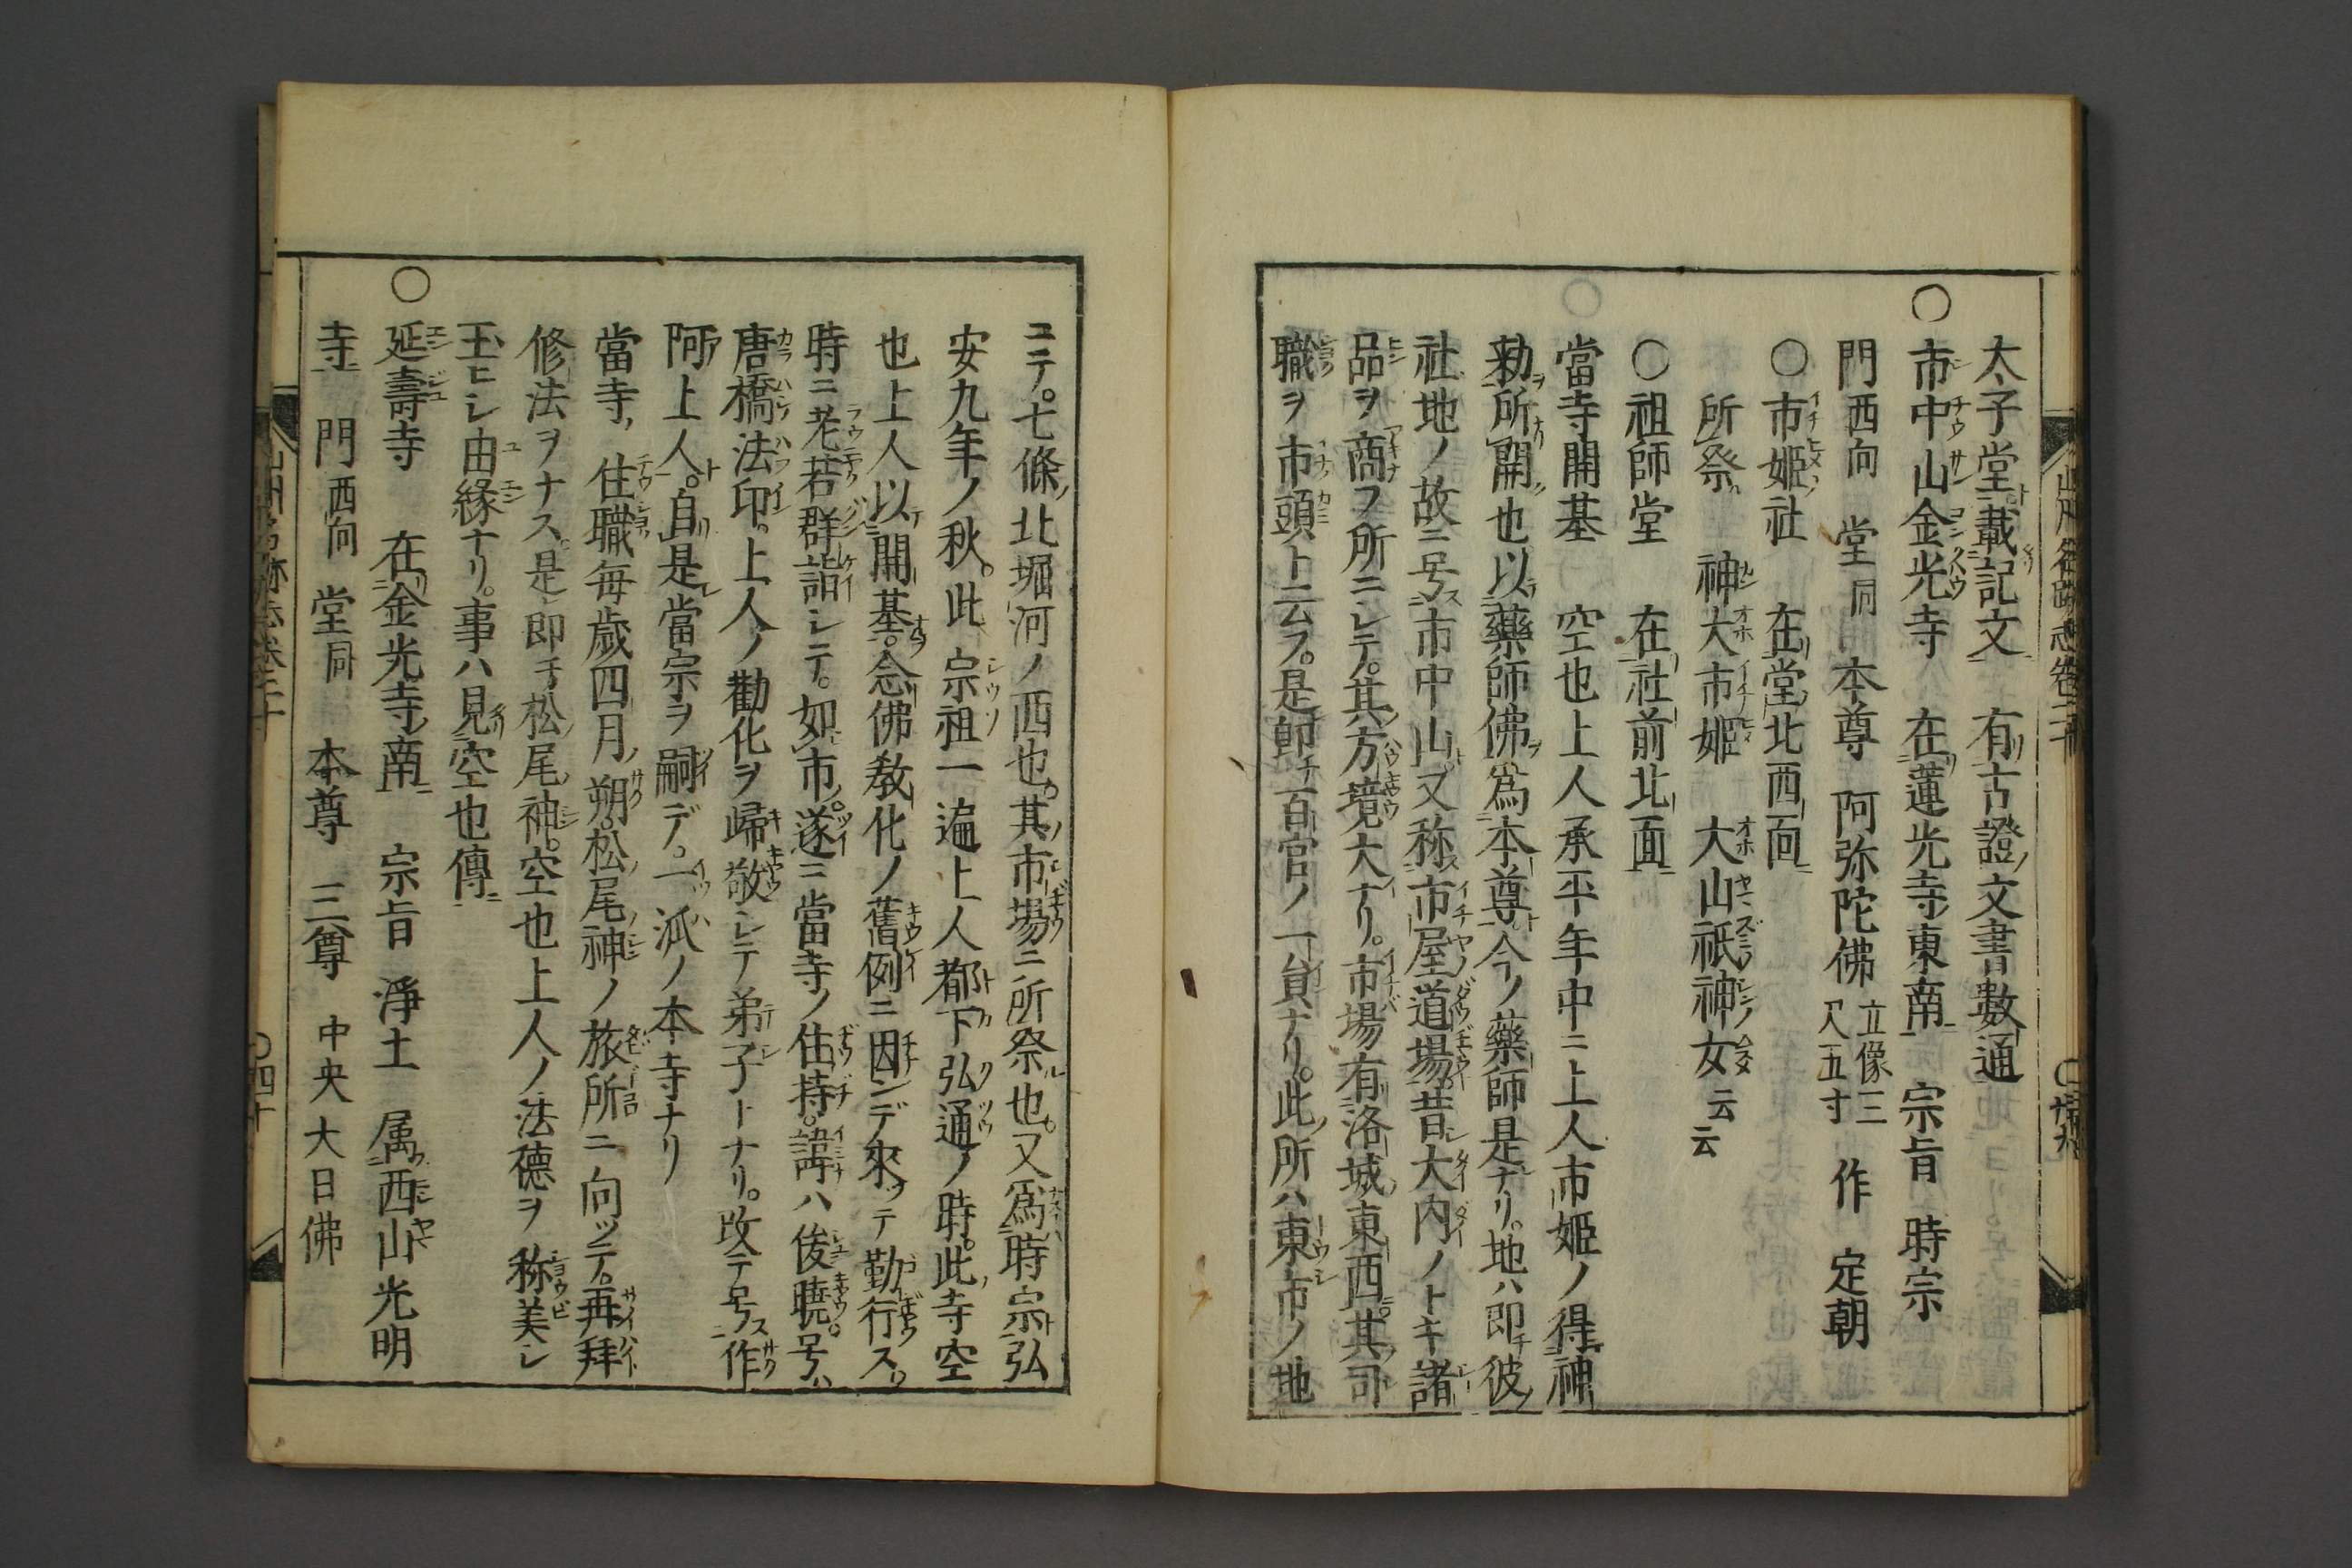 太子堂載記文　有古證文書数通
○市中山金光寺　在蓮光寺東南　宗旨　時宗
門西向　堂同　本尊　阿弥陀佛　立像三尺五寸　作　定朝
○市姫社　在堂北西面
所祭　神大市姫　大山祇神女云云
○祖師堂　在社前北面
當寺開基　空也上人承平年中ニ上人市姫ノ得神
勅所開也以藥師佛為本尊今ノ藥師是ナリ。地ハ即チ彼
社地ノ故ニ号ス市中山ト又称ス市屋道場昔大内ノトキ諸
品ヲ商フ所ニシテ。其方境大ナリ。市場有洛城東西其司
職ヲ市頭ト云フ。是卽チ百官ノ一貟ナリ。此所ハ東市ノ地
ニテ。七條北堀河ノ西也。其市場ニ所祭也。又為時宗弘
安九年ノ秋。此宗祖一遍上人都下弘通ノ時。此寺空
也上人以開基。念佛教化ノ舊例ニ因ンデ來ツテ勤行ス
時ニ老若群詣シテ。如市。遂ニ當寺ノ住持。諱ハ俊曉。号ハ
唐橋法印。上人ノ勸化ヲ歸敬シテ弟子トナリ。改テ号ス作
阿上人ト。自是當宗ヲ嗣デ。一派ノ本寺ナリ
當寺住職每歳四月朔。松尾神ノ旅所ニ向ツテ。再拜
修法ヲナス。是即チ松尾神。空也上人ノ法德ヲ称美シ
玉ヒシ由緣ナリ。事ハ見空也傳
○延壽寺　在金光寺南　宗旨　淨土　属西山光明
寺　門西向　堂同　本尊　三尊　中央大日佛
山州名跡志卷二十
○四十